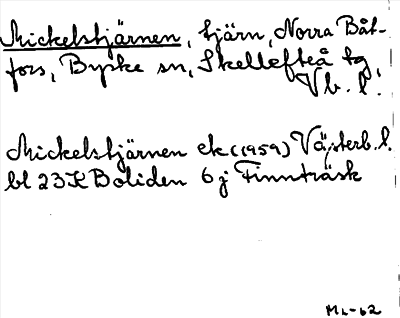 Mickelstjärnen, tjärn, Norra Båt-
fors, Byske sn, Skellefteå tg,
Vb. l.
Mickelstjärnen ek (1959) Västerb. l.
bl 23K Boliden 6j Finnträsk